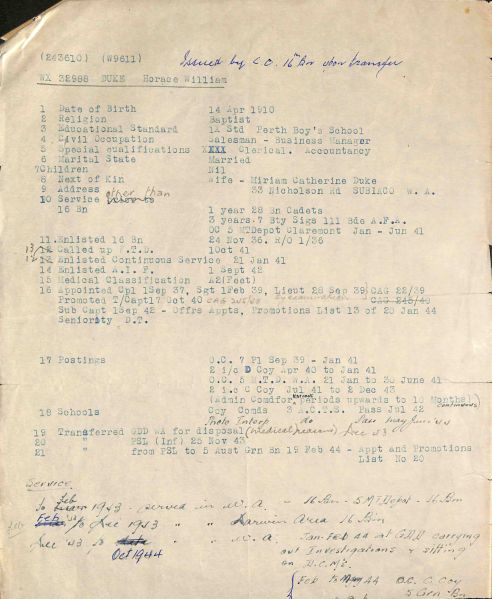 (243610) (W9611) Issued by C.O. 16th Bn upon transfer
WX 32988 DUKE Horace William
1 Date of Birth 14 Apr 1910
2 Religion Baptist
3 Educational Standard 1X Std Perth Boy's School
4 Civil Occupation Salesman - Business Manager
5 Special qualifications XXXX Clerical. Accountancy
6 Marital State Married
7 Children Nil
8 Next of Kin Wife - Miriam Catherine Duke
9 Address 33 Nicholson Rd SUBIACO W. A.
10 Service other than
16 Bn 1 year 28 Bn Cadets
3 years 7 Bty Sigs 111 Bde A.F.A.
OC 5 MTDepot Claremont Jan - Jun 41
11 Enlisted 16 Bn 24 Nov 36. R/O 1/36
Called up F.T.D. 1Oct 41
Enlisted Continuous Service 21 Jan 41
14 Enlisted A.I.F. 1 Sept 42
15 Medical Classification A2(Feet)
16 Appointed Cpl 1Sep 37, Sgt 1Feb 39, Lieut 28 Sep 39 by examination CAG 22/39
Promoted T/Capt17 Oct 40 CAG 245/40
Sub Capt 1Sep 42 - Offrs Appts, Promotions List 13 of 20 Jan 44
Seniority D.T.
17 Postings O.C. 7 Pl Sep 39 - Jan 41
2 i/c D Coy Apr 40 to Jan 41
O.C. 5 M.T.D. W.A. 21 Jan to 30 June 41
2 i/c C Coy Jul 41 to 2 Dec 43
(Admin Comdfor various periods upwards to 10 Months) continuous
18 Schools Coy Comds 3 A.C.T.S. Pass Jul 42
Photo Interp do Pass May/Jun '43
19 Transferred GDD WA for disposal (Medical reasons) Dec 43
20 " PSL (Inf) 25 Nov 43
21 " from PSL to 5 Aust Grn Bn 19 Feb 44 - Appt and Promotions
List No 20
Service
To Feb 1943 - served in W.A. - 16 Bn - 5 MT Depot - 16 Bn
Feb '43 to Dec 1943 " " Darwin Area 16 Bn
Dec '43 to Oct 1944 " " W.A. Jan-Feb 44 at G.D.D. carrying
out Investigations & sitting
on D.C.M's.
Feb to May 44 O.C. C Coy
5 Grn Bn